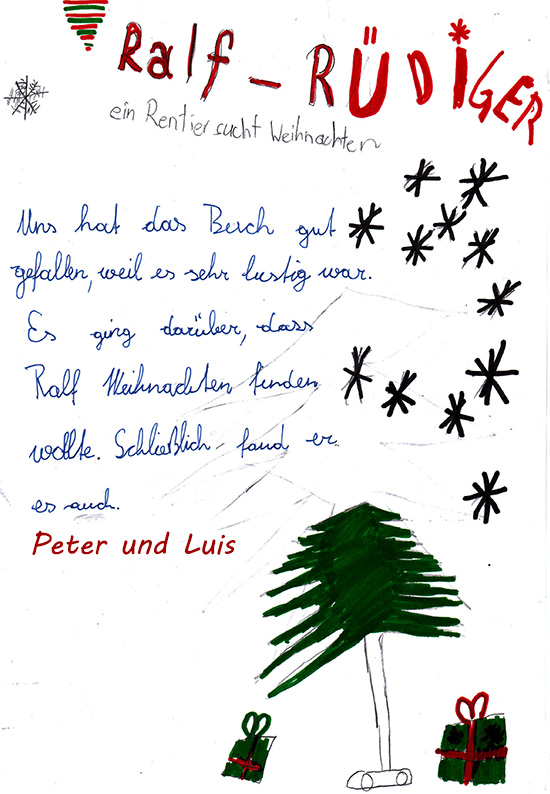 Ralf – RÜDiGER
ein Rentier sucht Weihnachten
Uns hat das Buch gut
gefallen, weil es sehr lustig war.
Es ging darüber, dass
Ralf Weihnachten finden
wollte. Schließlich fand er
es auch.
Peter und Luis